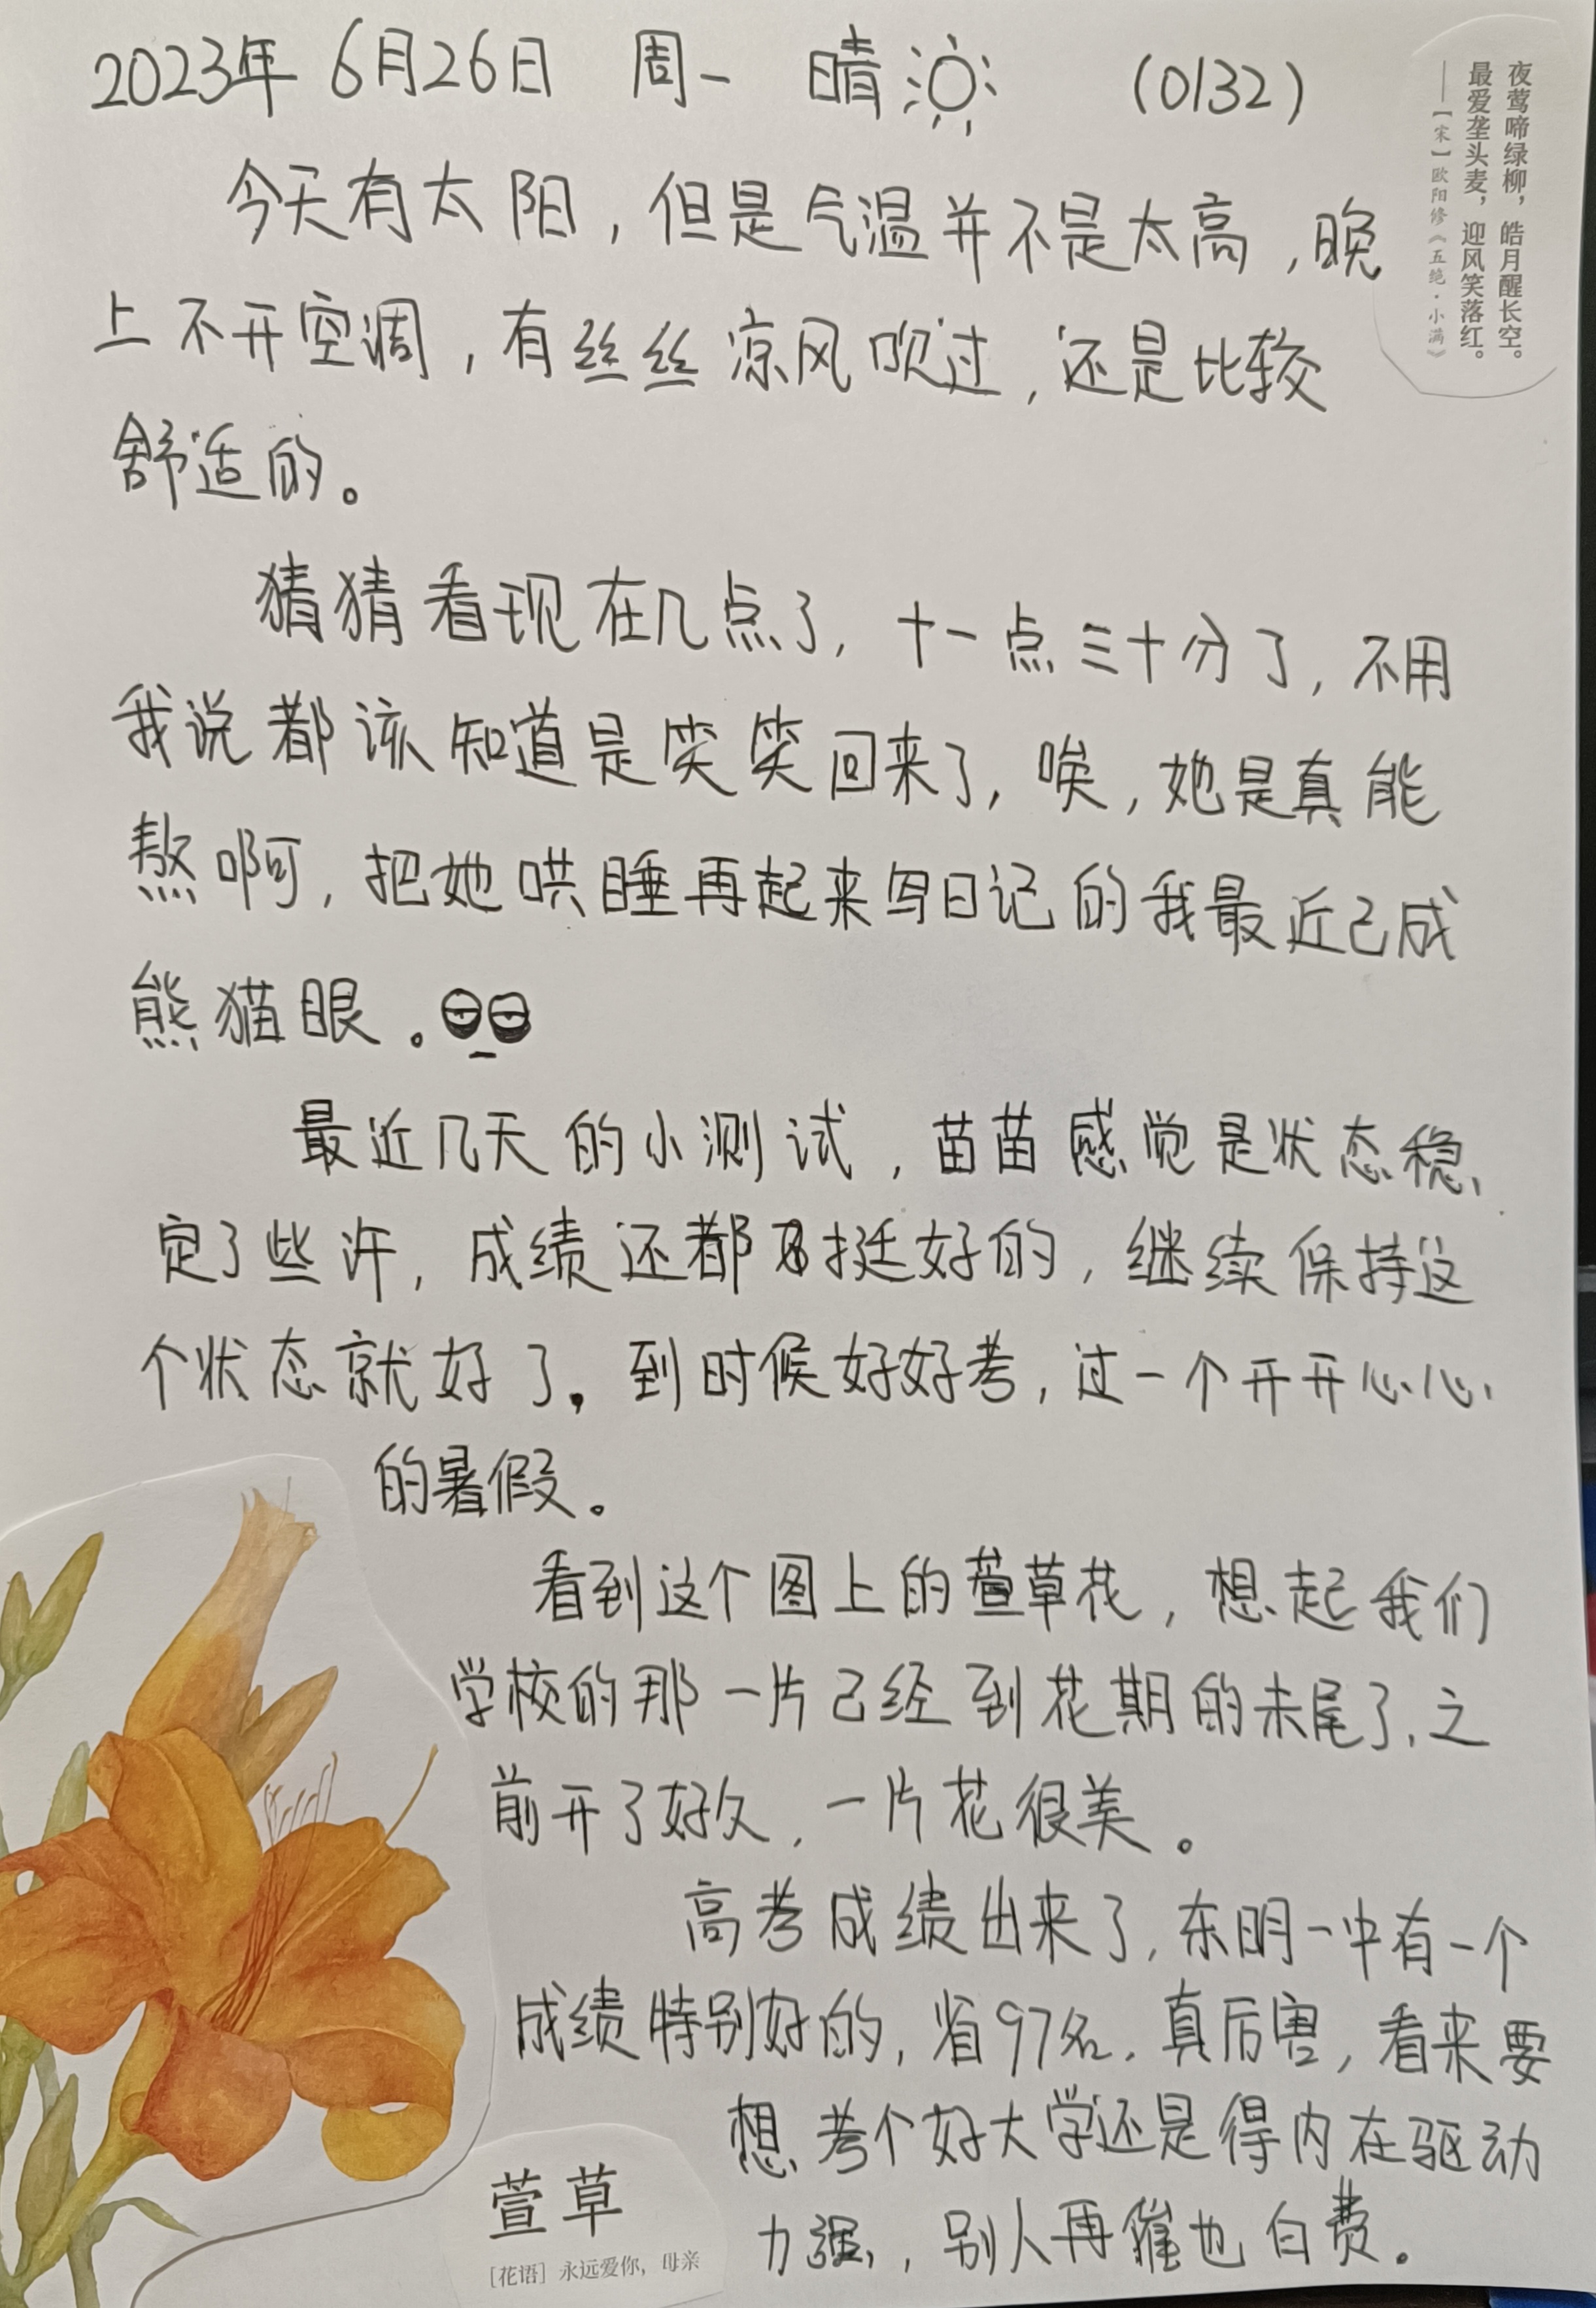 2023年 6月26日 周一 晴 (0132)
夜莺啼绿柳，皓月醒长空。
最爱垄头麦，迎风笑落红。
——[宋]欧阳修《五绝·小满》
今天有太阳，但是气温并不是太高，晚
上不开空调，有丝丝凉风吹过，还是比较
舒适的。
猜猜看现在几点了，十一点三十分了，不用
我说都该知道是笑笑回来了，唉，她是真能
熬啊，把她哄睡再起来写日记的我最近已成
熊猫眼。
最近几天的小测试，苗苗感觉是状态稳
定了些许，成绩还都挺好的，继续保持这
个状态就好了。到时候好好考，过一个开开心心
的暑假。
看到这个图上的萱草花，想起我们
学校的那一片已经到花期的末尾了，之
前开了好久，一片花很美。
高考成绩出来了，东明一中有一个
成绩特别好的，省97名，真厉害，看来要
想考个好大学还是得内在驱动
力强，别人再催也白费。
萱草
[花语] 永远爱你，母亲